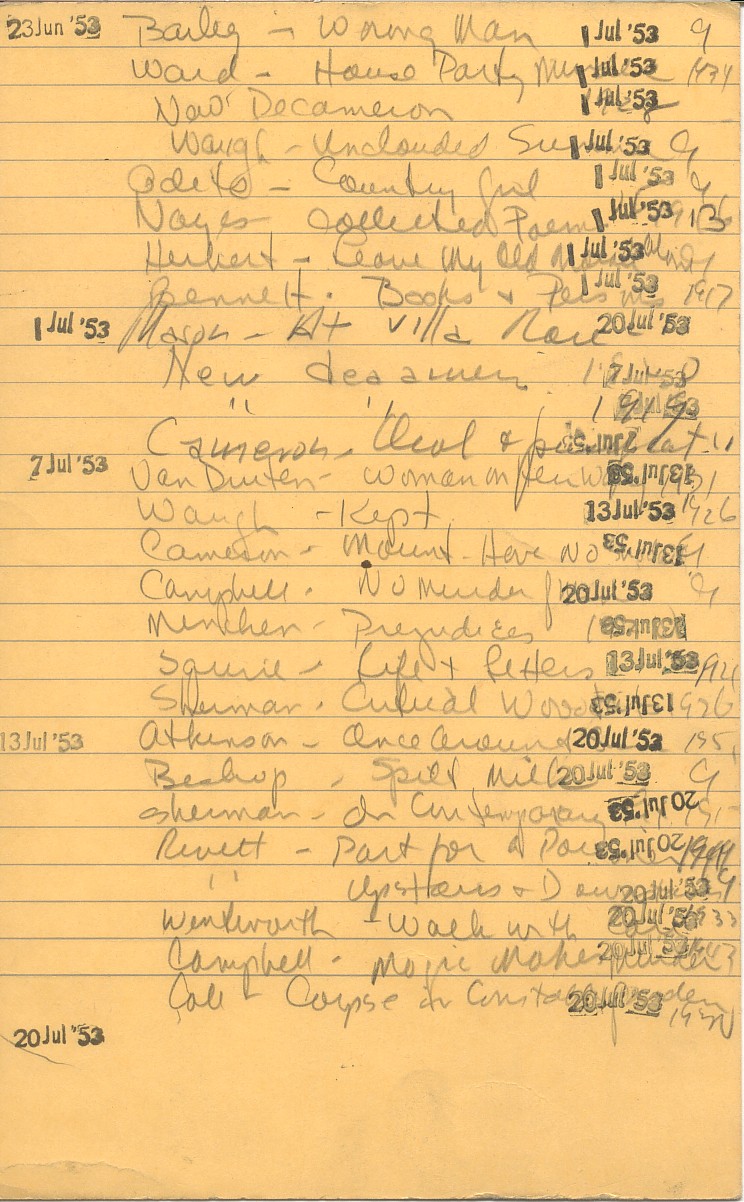 23 Jun '53 Bailey - Wrong Man 1 Jul '53 G
Ward - House Party Murder 1 Jul '53
New Decameron 1 Jul '53
Waugh - Unclouded Summer 1 Jul '53 G
Odets - Country Girl 1 Jul '53 G
Noyes Collected Poems 1 Jul '53
Herbert - Leave My Old Morale 1 Jul '53
Bennett - Books & Persons 1 Jul '53 1917
1 Jul '53 Mason - At Villa Rose 20 Jul '53
New decameron 7 Jul '53
" "
Cameron - &
7 Jul '53 Van Druten - Woman on her Way 13 Jul '53
Waugh - Kept 13 Jul '53 1926
Cameron - Mount - Have No 13 Jul '53
Campbell - No Murder 20 Jul '53 G
Mencken - Prejudices 13 Jul '53
Squire - Life & Letters 13 Jul '53
Sherman - Critical Woodcuts 13 Jul '53 1926
13 Jul '53 Atkinson - Once Around 20 Jul '53
Bishop - Spilt Milk 20 Jul '53 G
Sherman - On Contemporary 20 Jul '53
Revett - Part for a 20 Jul '53
" Upstairs & Downstairs 20 Jul '53
Wentworth - Walk with Care 20 Jul '53 1933
Campbell - Magic Makes Murder 20 Jul '53
Call - Corpse in Constable's Garden 20 Jul '53
20 Jul '53